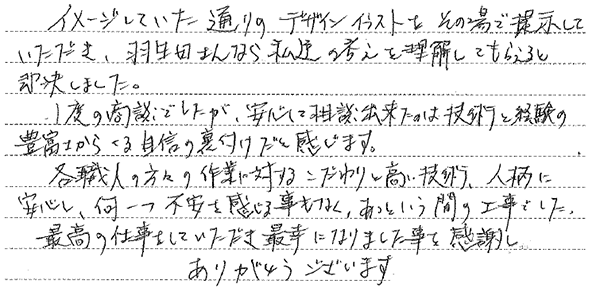 イメージしていた通りの デザインイラストを その場で提示して
いただき、羽生田さんなら 私達の考えを理解してもらえると
即決しました。
1度の商談でしたが、安心して相談出来たのは技術と経験の
豊富さからくる自信の裏付けだと感じます。
各職人の方々の作業に対するこだわりと高い技術、人柄に
安心し、何一つ不安を感じる事もなく、あっという間の工事でした。
最高の仕事をしていただき最幸になりました事を感謝し
ありがとうございます